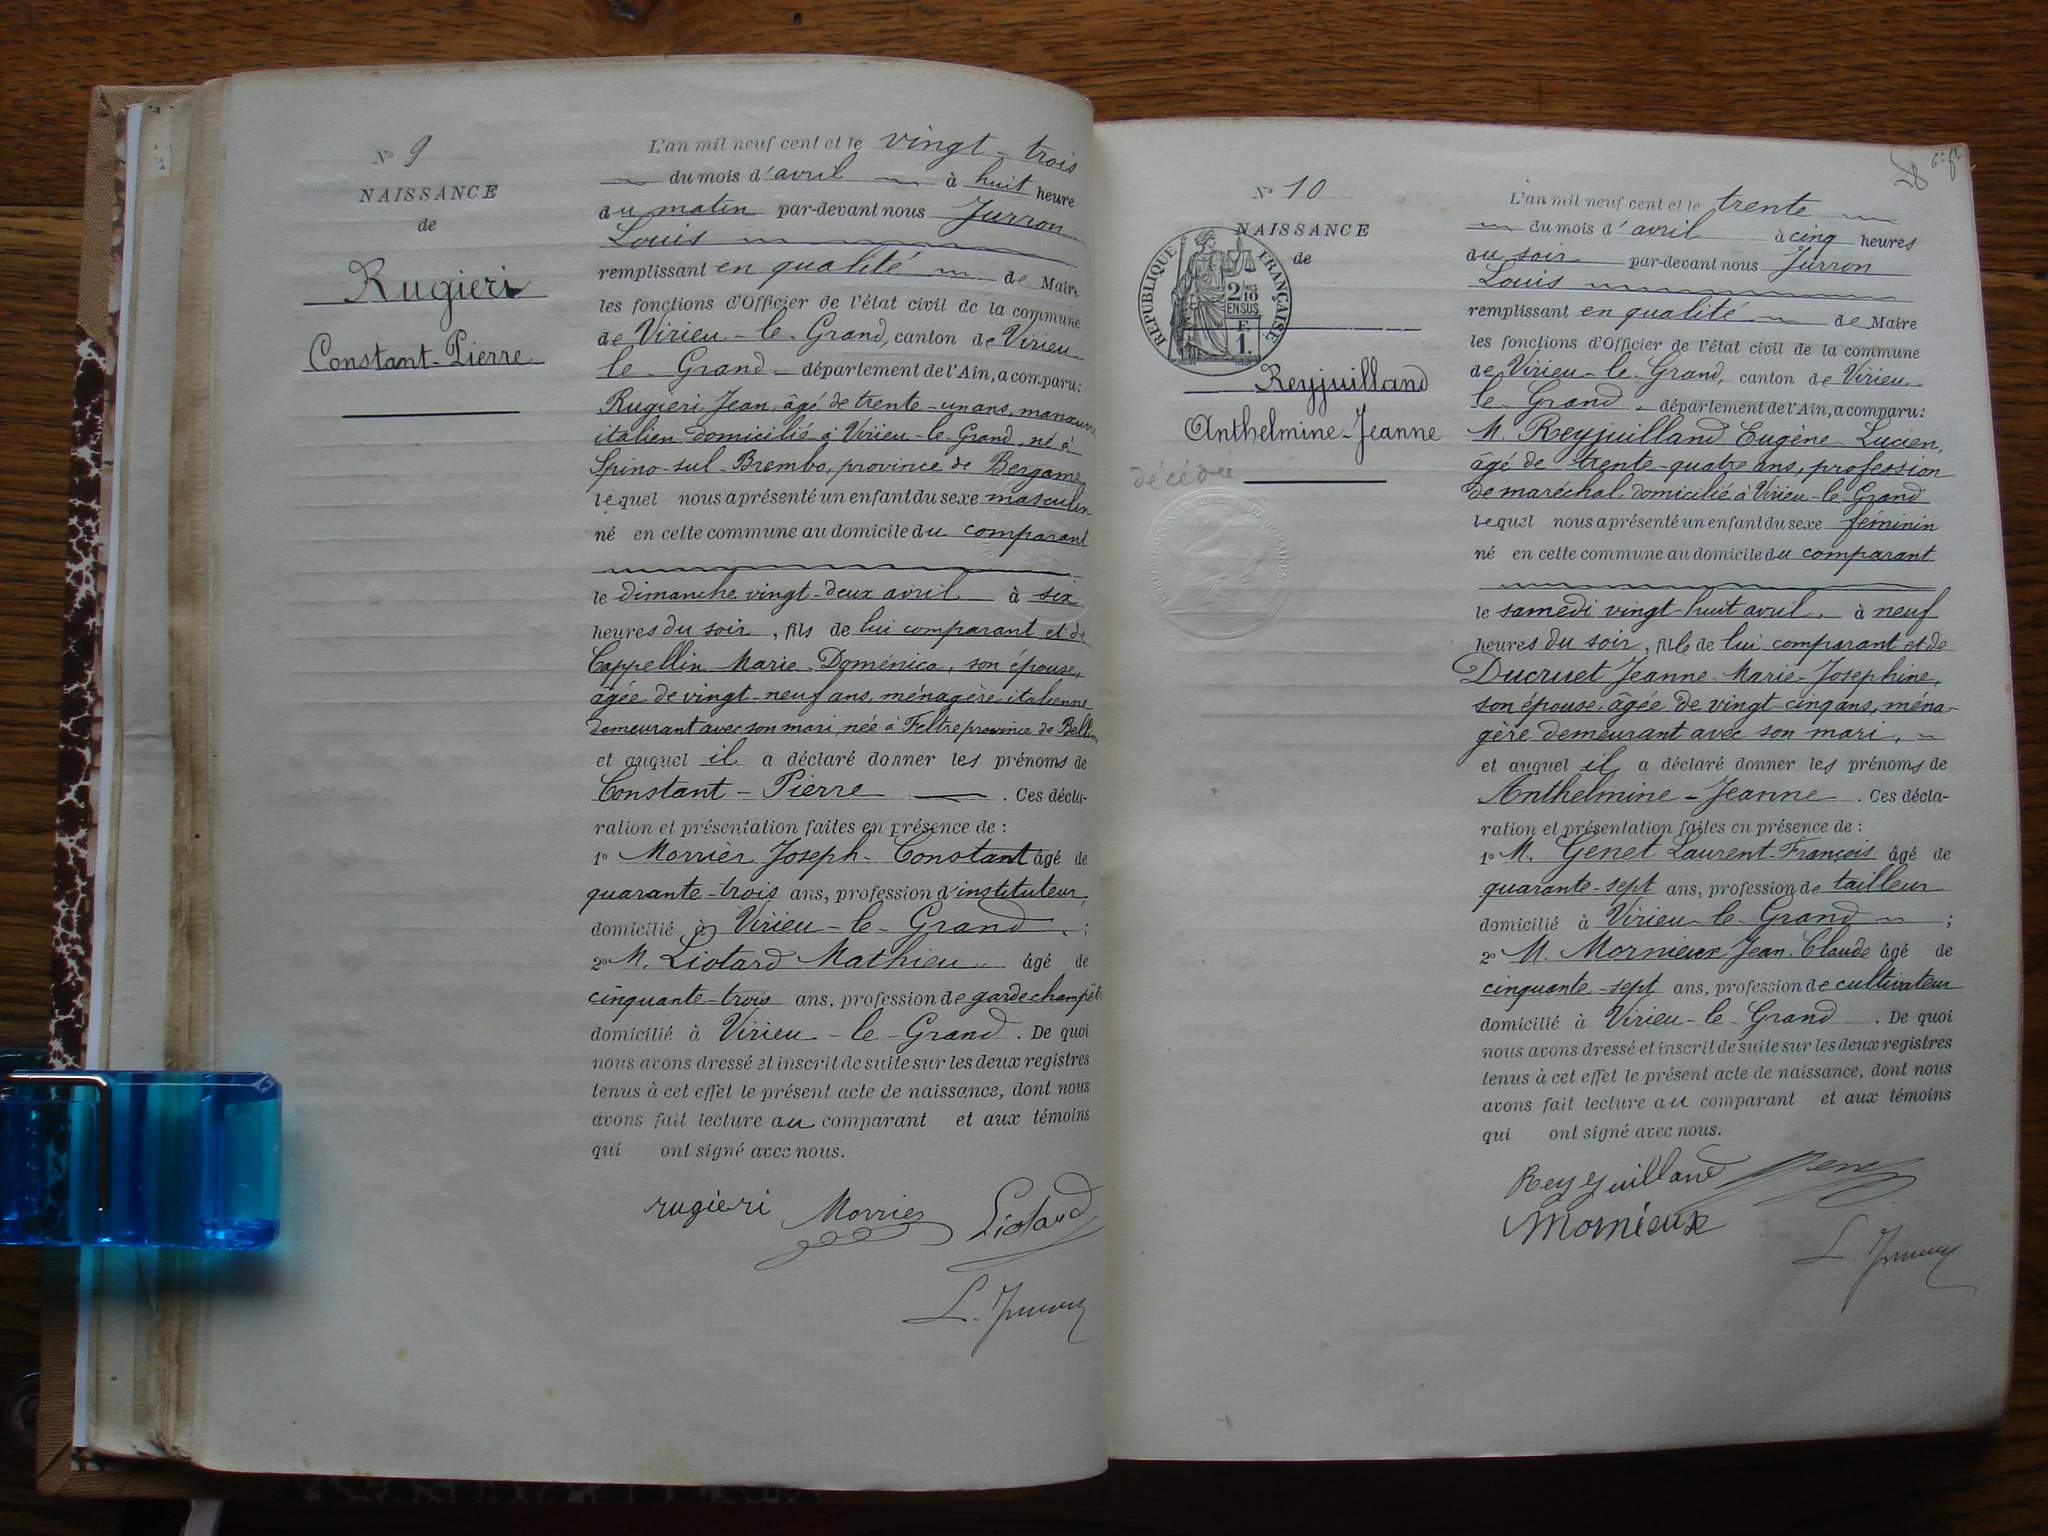 N° 9
NAISSANCE
de
Rugieri
Constant-Pierre
L'an mil neuf cent et le vingt-trois
du mois d'avril à huit heure
du matin par-devant nous Jurron
Louis
remplissant en qualité de Maire
les fonctions d'Officier de l'état civil de la commune
de Virieu-le-Grand, canton de Virieu-
le-Grand - département de l'Ain, a comparu:
Rugieri Jean, âgé de trente-un ans, manœuvre
italien domicilié à Virieu-le-Grand, né à
Spino-sul-Brembo, province de Bergame
lequel nous a présenté un enfant du sexe masculin
né en cette commune au domicile du comparant
le dimanche vingt-deux avril à six
heures du soir, fils de lui comparant et de
Cappellin Marie-Doménica, son épouse,
âgée de vingt-neuf ans, ménagère italienne
demeurant avec son mari, née à Feltre province de Bellun
et auquel il a déclaré donner les prénoms de
Constant-Pierre. Ces décla-
ration et présentation faites en présence de :
1° Morrier Joseph-Constant âgé de
quarante-trois ans, profession d'instituteur,
domicilié à Virieu-le-Grand ;
2° M. Liotard Mathieu âgé de
cinquante-trois ans, profession de garde champêt.
domicilié à Virieu-le-Grand. De quoi
nous avons dressé et inscrit de suite sur les deux registres
tenus à cet effet le présent acte de naissance, dont nous
avons fait lecture au comparant et aux témoins
qui ont signé avec nous.
rugieri Morrier Liotard
L. Jurron
6e ft
N° 10
NAISSANCE
de
RÉPUBLIQUE FRANÇAISE
2 10 EN SUS
F.
1.
Reyjuilland
Anthelmine-Jeanne
décédée
L'an mil neuf cent et le trente
du mois d'avril à cinq heures
du soir par-devant nous Jurron
Louis
remplissant en qualité de Maire
les fonctions d'Officier de l'état civil de la commune
de Virieu-le-Grand, canton de Virieu-
le Grand - département de l'Ain, a comparu:
M. Reyjuilland Eugène-Lucien,
âgé de trente-quatre ans, profession
de maréchal domicilié à Virieu-le-Grand
lequel nous a présenté un enfant du sexe féminin
né en cette commune au domicile du comparant
le samedi vingt-huit avril, à neuf
heures du soir, fille de lui comparant et de
Ducruet Jeanne-Marie-Josephine,
son épouse, âgée de vingt-cinq ans, ména-
gère demeurant avec son mari,
et auquel il a déclaré donner les prénoms de
Anthelmine-Jeanne. Ces décla-
ration et présentation faites en présence de :
1° M. Genet Laurent-François âgé de
quarante-sept ans, profession de tailleur
domicilié à Virieu-le-Grand ;
2° M. Mornieux Jean-Claude âgé de
cinquante-sept ans, profession de cultivateur
domicilié à Virieu-le-Grand. De quoi
nous avons dressé et inscrit de suite sur les deux registres
tenus à cet effet le présent acte de naissance, dont nous
avons fait lecture au comparant et aux témoins
qui ont signé avec nous.
Reyjuilland Genet
Mornieux
L. Jurron